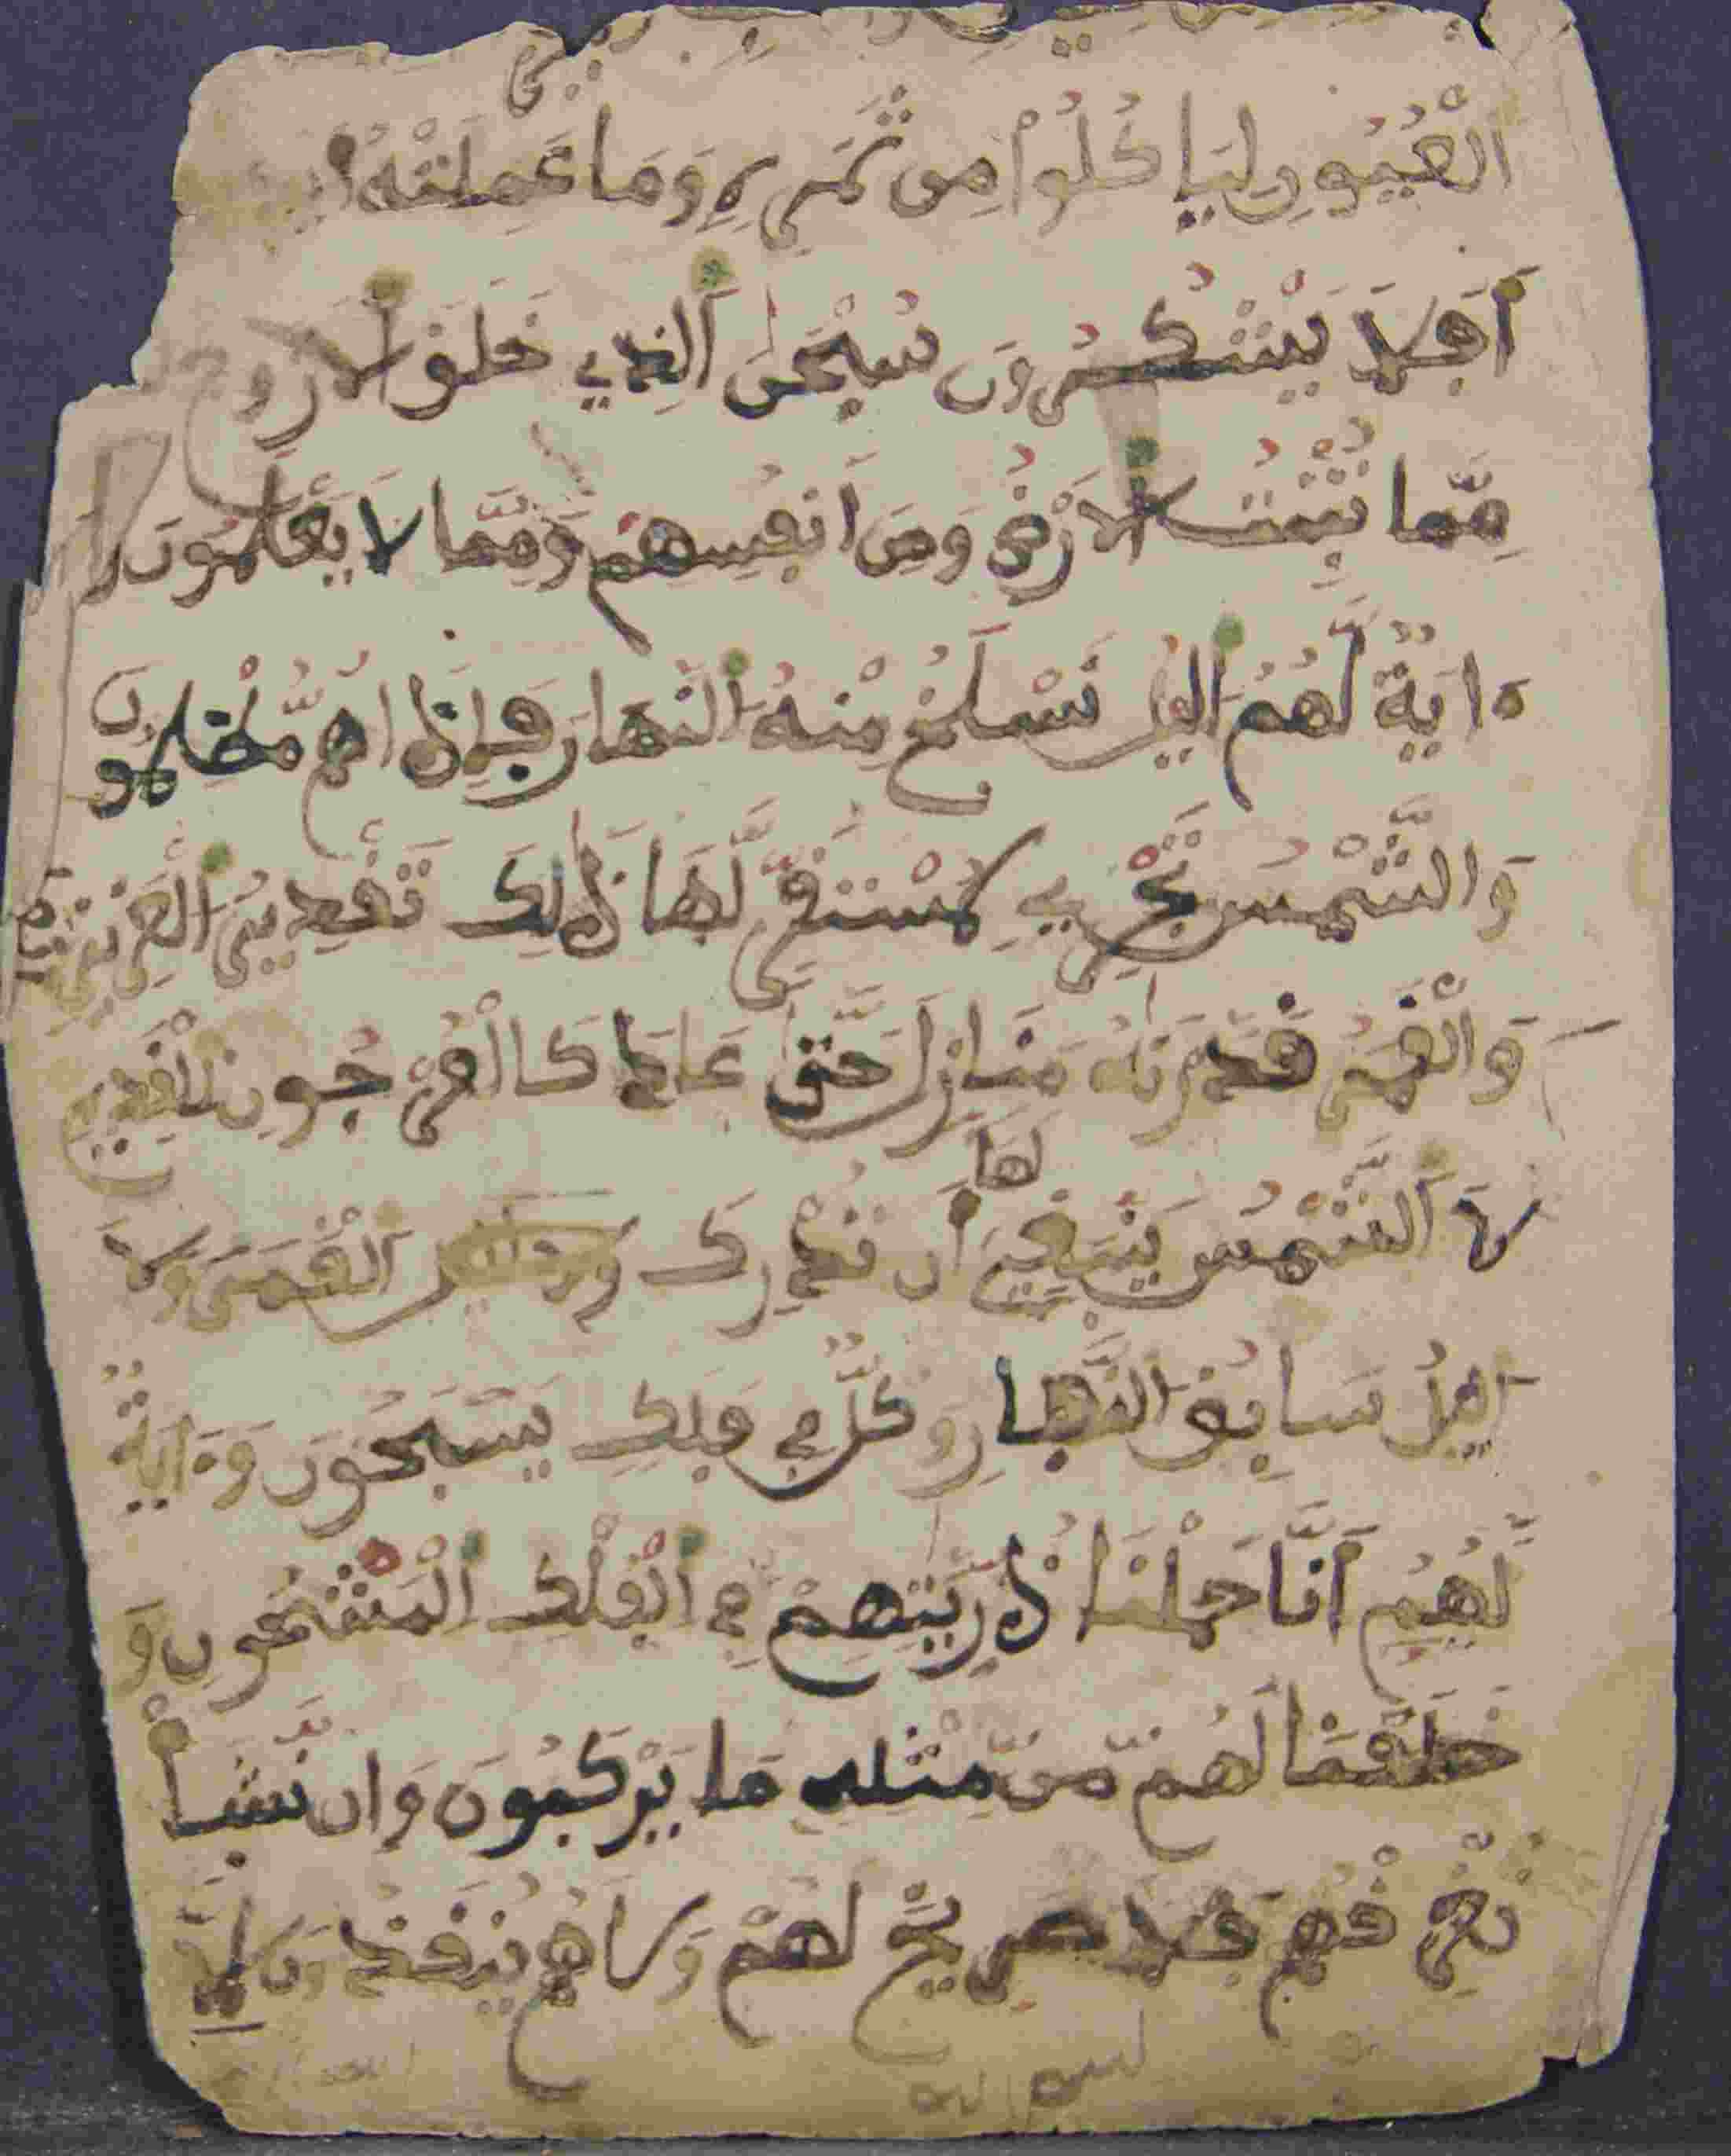 الْعُيُونِ لِيَاكُلُواْ مِن ثَمَرِهِ وَمَا عَمِلَتْهُ
أَفَلَا يَشْكُرُونَ سُبْحَٰنَ اَلذِي خَلَقَ الَازْوَٰجَ
مِمَّا تُنْبِتُ الَارْضُ وَمِنَ اَنفُسِهِمْ وَمِمَّا لَا يَعْلَمُونَ وَ
ءَايَةٌ لَّهُمُ اَليْلُ نَسْلَخُ مِنْهُ اَلنَّهَارَ فَإِذَا هُم مُّظْلِمُونَ
وَالشَّمْسُ تَجْرِي لِمُسْتَقَرٍّ لَّهَا ذَٰلِكَ تَقْدِيرُ اَلْعَزِيزِ
وَالْقَمَرُ قَدَّرْنَٰهُ مَنَازِلَ حَتَّىٰ عَادَ كَالْعُرْجُونِ الْقَدِيمِ
لَا اَلشَّمْسُ يَنْبَغِي
لَهَا
أَن تُدْرِكَ اَلْقَمَرَ وَلَا
اَليْلُ سَابِقُ النَّهَارِ وَكُلٌّ فِي فَلَكٍ يَسْبَحُونَ وَءَايَةٌ
لَّهُمُ أَنَّا حَمَلْنَا ذُرِّيَّتِهِمْ فِي اَلْفُلْكِ اِلْمَشْحُونِ وَ
خَلَقْنَا لَهُم مِّن مِّثْلِهِ مَا يَرْكَبُونَ وَإِن نَّشَأْ
نُغْرِقْهُمْ فَلَا صَرِيخَ لَهُمْ وَلَا هُمْ يُنقَذُ